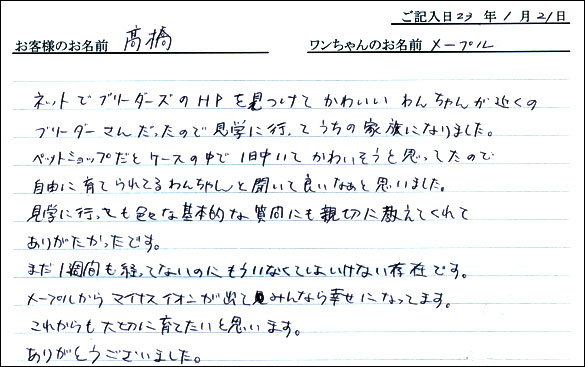 ご記入日23年1月21日
お客様のお名前 髙橋 ワンちゃんのお名前 メープル
ネットでブリーダーズのHPを見つけてかわいいわんちゃんが近くの
ブリーダーさんだったので見学に行ってうちの家族になりました。
ペットショップだとケースの中で1日中いてかわいそうと思ってたので
自由に育てられてるわんちゃんと聞いて良いなあと思いました。
見学に行っても色々な基本的な質問にも親切に教えてくれて
ありがたかったです。
まだ1週間も経ってないのにもういなくてはいけない存在です。
メープルからマイナスイオンが出てみんなら幸せになってます。
これからも大切に育てたいと思います。
ありがとうございました。